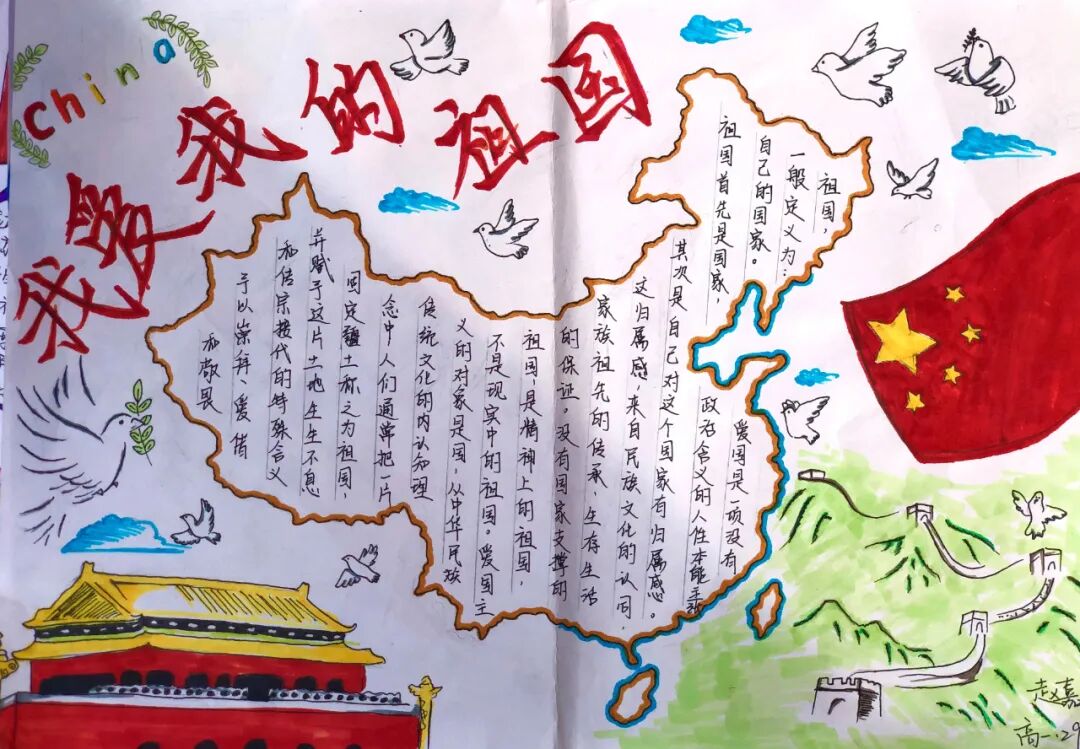 China
我爱我的祖国
祖国，
一般定义为：
自己的国家。
祖国首先是国家，
其次是自己对这个国家有归属感。
这归属感，来自民族文化的认同，
家族祖先的传承，生存生活
的保证。没有国家支撑的
祖国，是精神上的祖国，
不是现实中的祖国。爱国主
义的对象是国，从中华民族
传统文化的内认知理
念中人们通常把一片
固定疆土称之为祖国，
并赋予这片土地生生不息
和传宗接代的特殊含义
予以崇拜、爱借
和敬畏
爱国是一项没有
政治含义的人性本能
赵嘉
高一.29